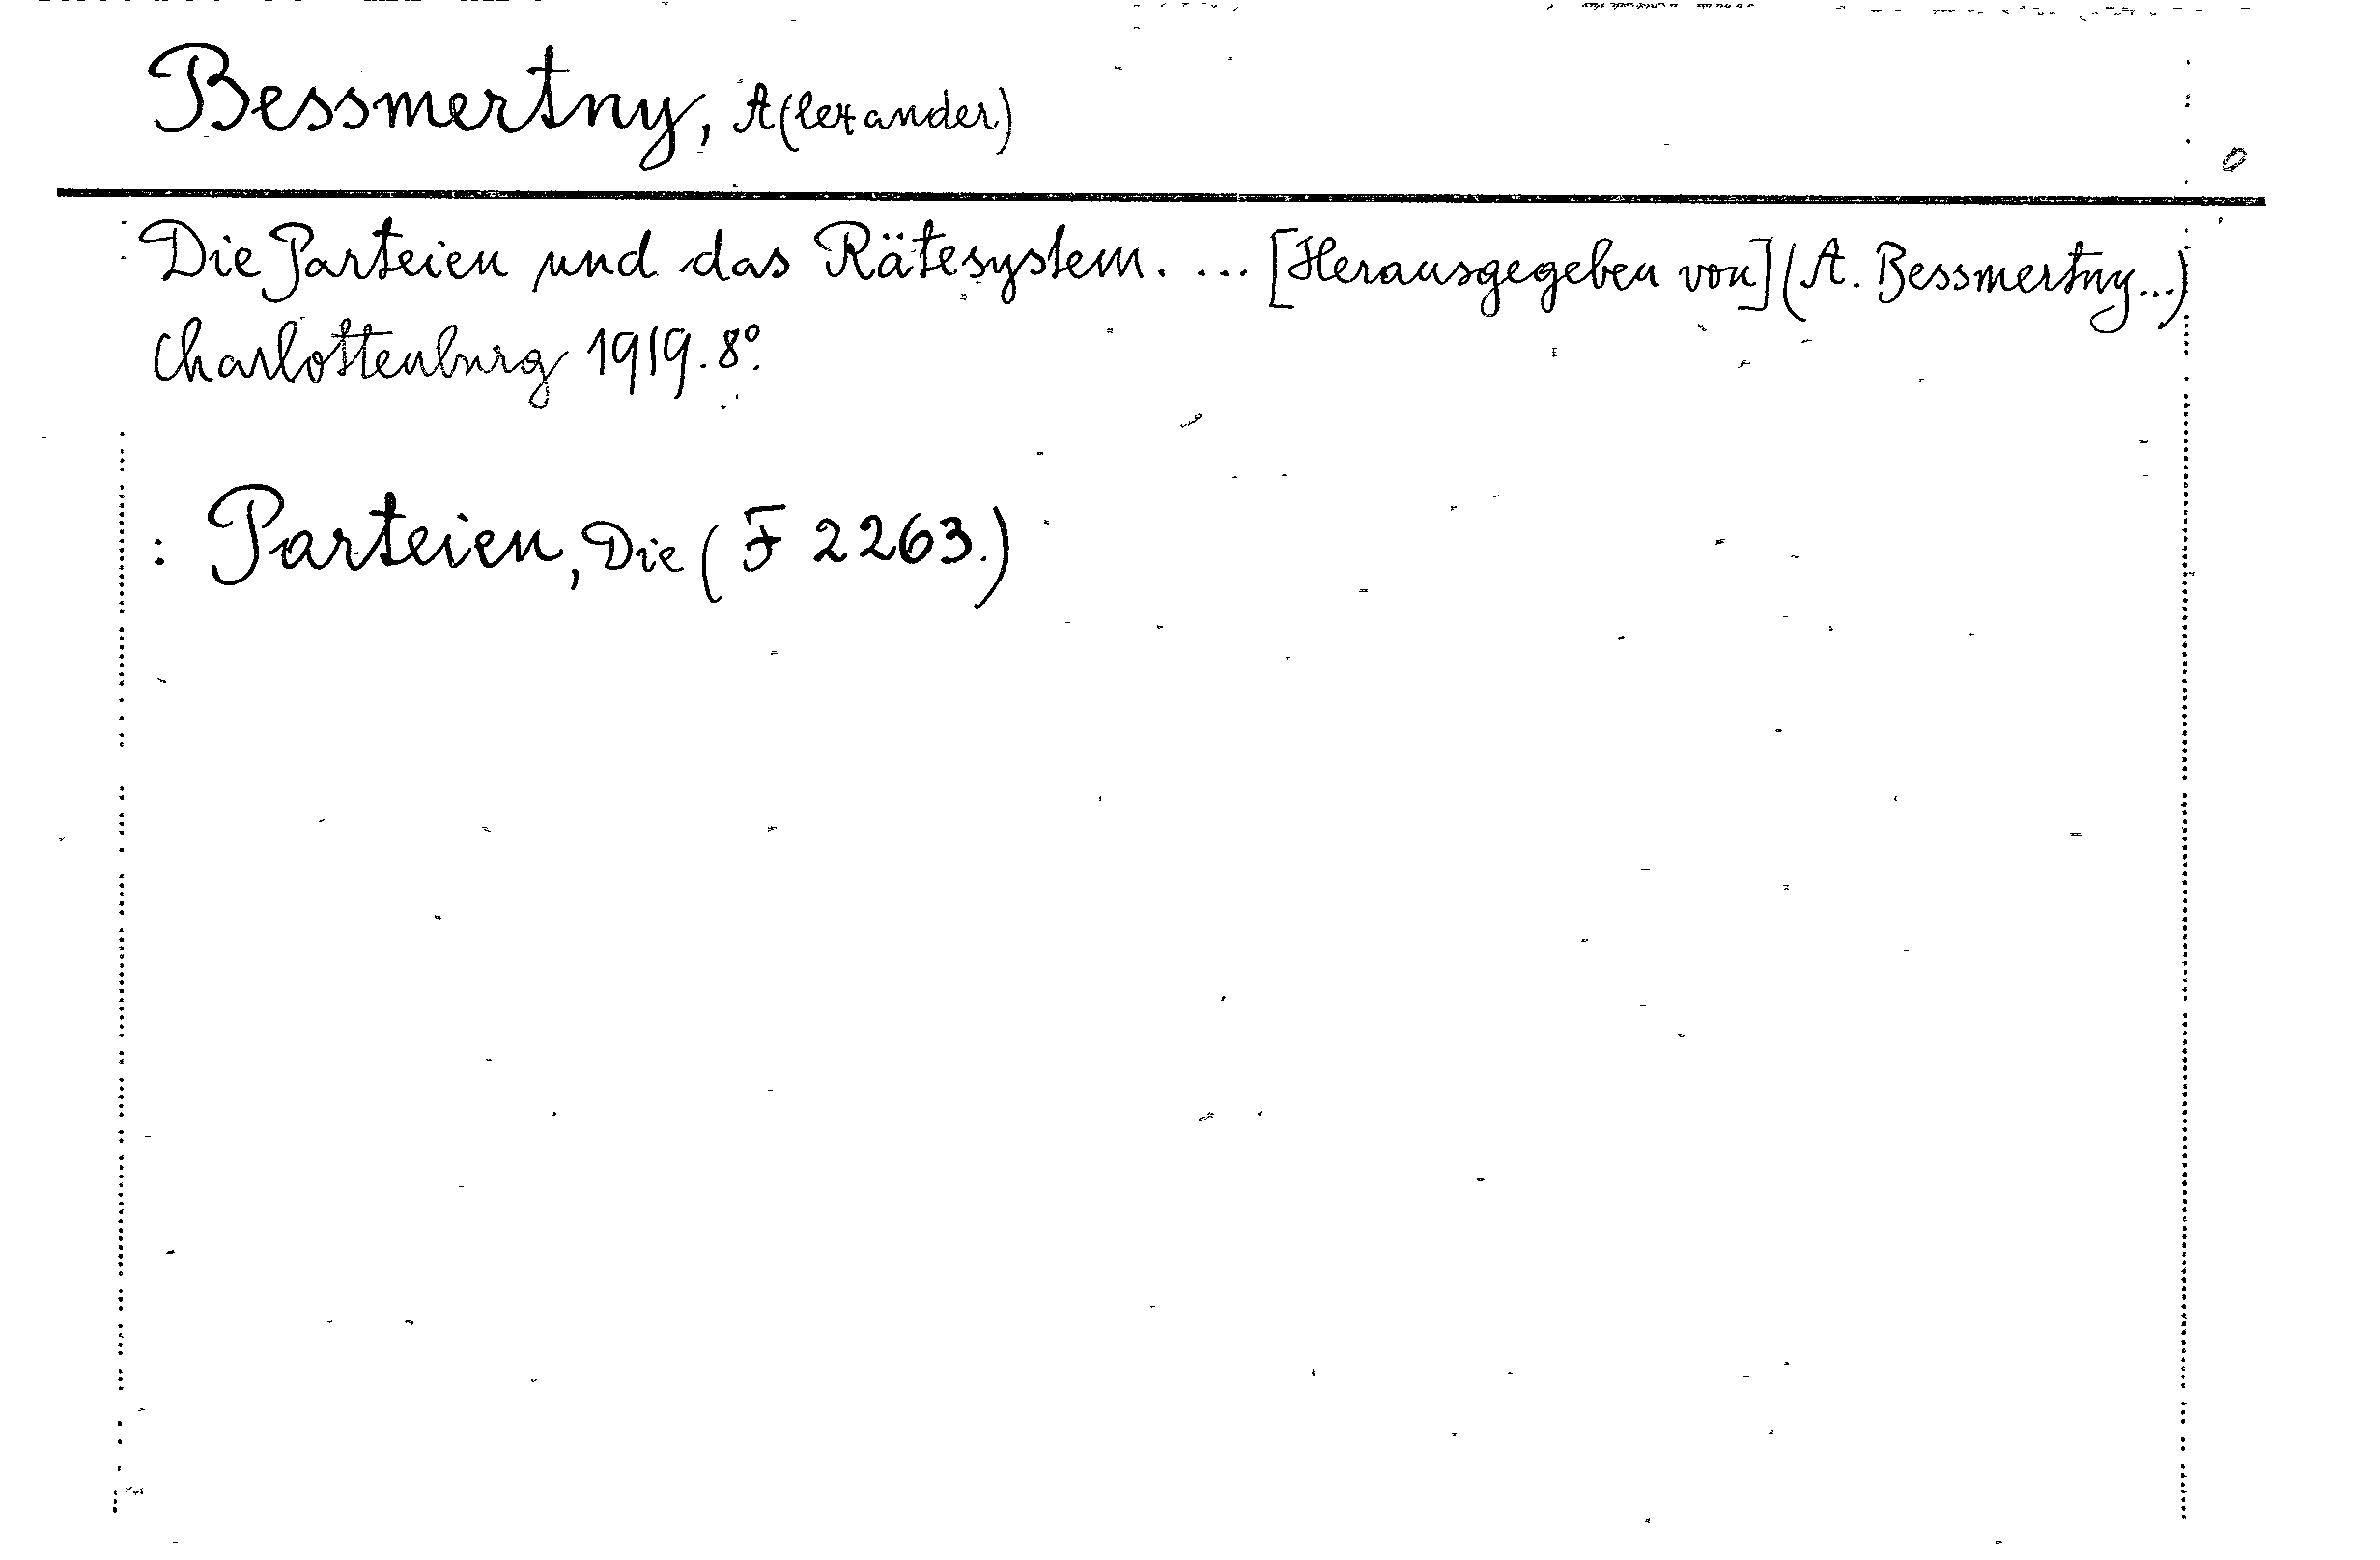 Bessmertny, A(lexander)
Die Parteien und das Rätesystem. ... [Herausgegeben von] (A. Bessmertny...)
Charlottenburg 1919. 8°.
: Parteien, Die (F 2263.)